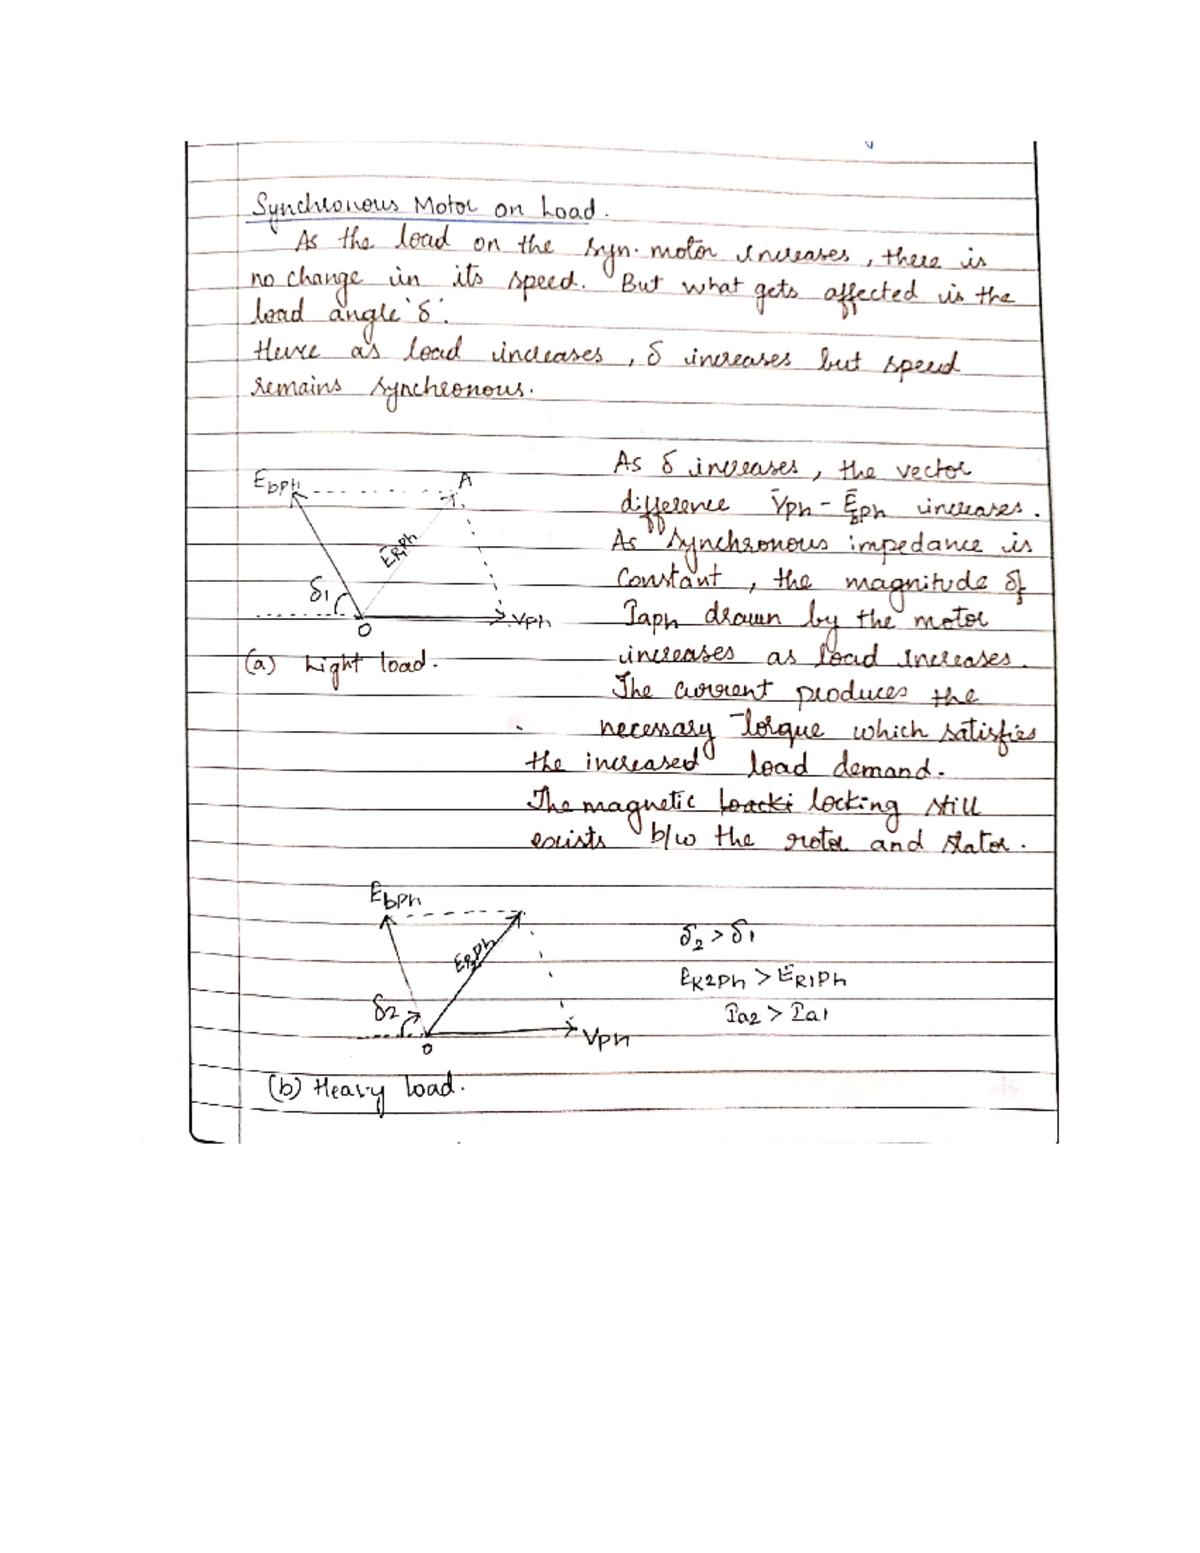 Synchronous Motor on Load.
As the load on the syn. motor increases, there is
no change in its speed. But what gets affected is the
load angle 'δ'.
Hence as load increases, δ increases but speed
remains synchronous.
EbPh
A
ER1Ph
δ1
O
Vph
(a) Light load.
As δ increases, the vector
difference V̄ph - Ēbph increases.
As synchronous impedance is
Constant, the magnitude of
Iaph drawn by the motor
increases as load increases.
The current produces the
necessary Torque which satisfies
the increased load demand.
The magnetic locking still
exists b/w the rotor and stator.
EbPh
ER2Ph
δ2
O
Vph
(b) Heavy load.
δ2 > δ1
ER2Ph > ER1Ph
Ia2 > Ia1